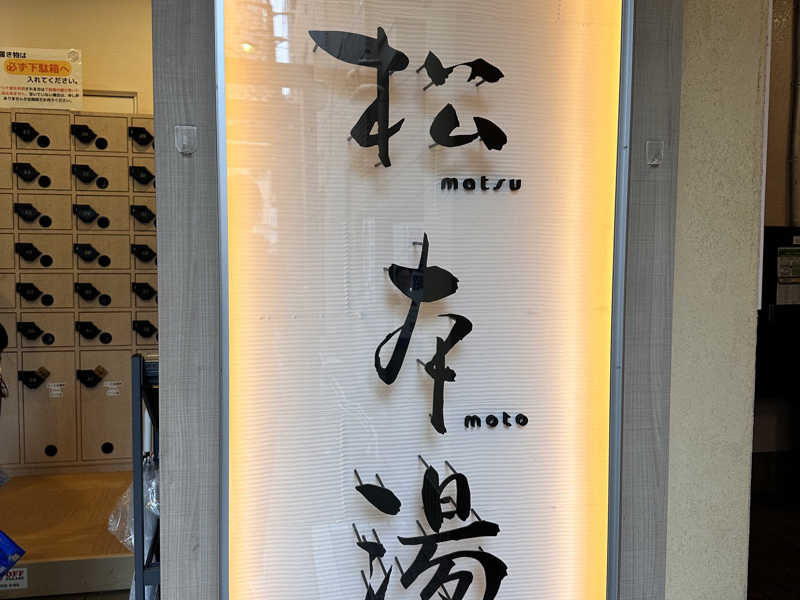 履き物は
必ず下駄箱へ
入れてください。
松
matsu
本
moto
湯